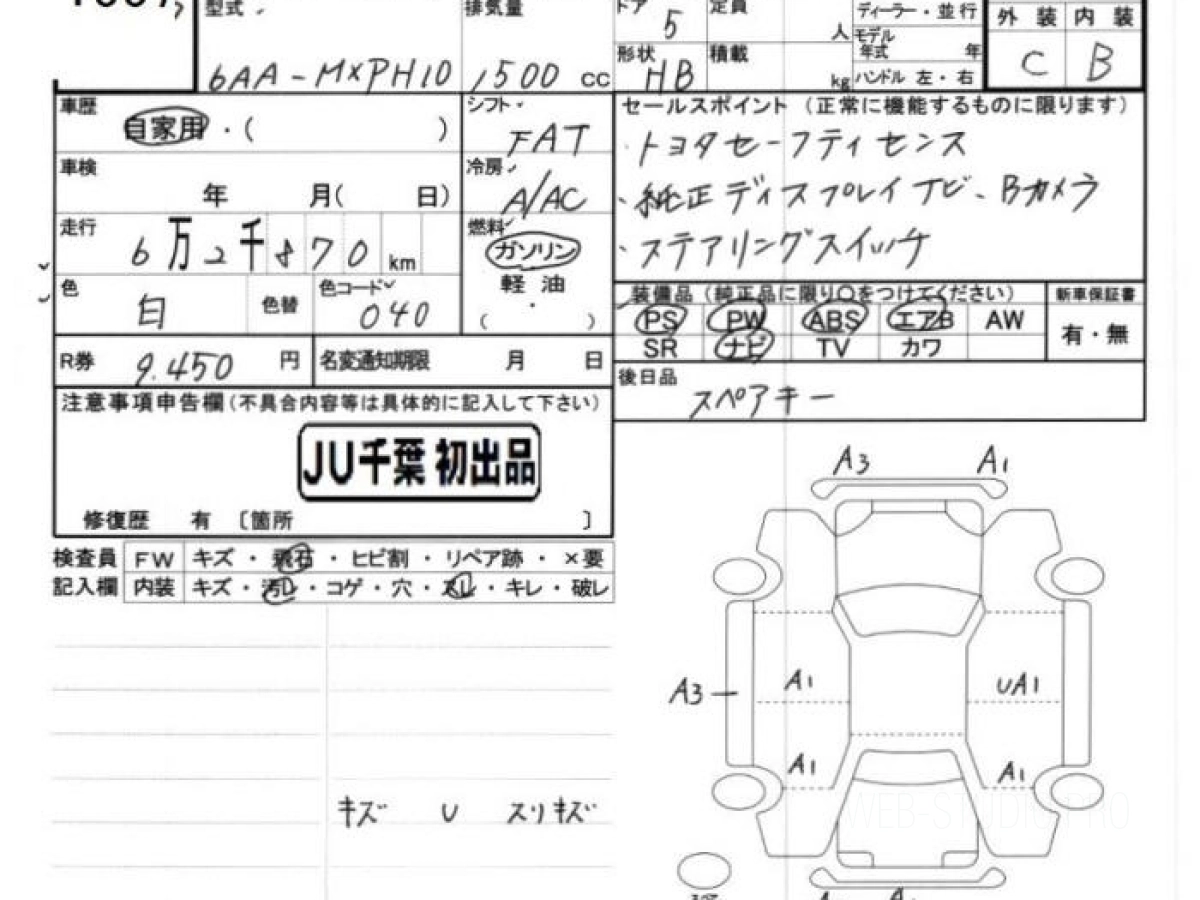 型式 排気量 ドア 定員 ディーラー・並行 外装 内装
5 人 モデル年式 年 C B
6AA-MXPH10 1500 cc 形状 HB 積載 kg ハンドル 左・右
車歴 自家用・( ) シフト FAT セールスポイント (正常に機能するものに限ります)
・トヨタセーフティセンス
車検 年 月( 日) 冷房 A/AC
・純正ディスプレイナビ、Bカメラ
走行 6万2千870km 燃料 ガソリン
・ステアリングスイッチ
軽油
色 白 色替 色コード 040 ( )
装備品 (純正品に限り○をつけてください) 新車保証書
PS PW ABS エアB AW 有・無
SR ナビ TV カワ
R券 9.450 円 名変通知期限 月 日
後日品 スペアキー
注意事項申告欄(不具合内容等は具体的に記入して下さい)
JU千葉 初出品
修復歴 有 〔箇所 〕
検査員 FW キズ・飛石・ヒビ割・リペア跡・×要
記入欄 内装 キズ・汚レ・コゲ・穴・スレ・キレ・破レ
A3 A1
A3 A1 UA1
A1 A1
キズ U スリキズ
WEB-STUDIO PRO